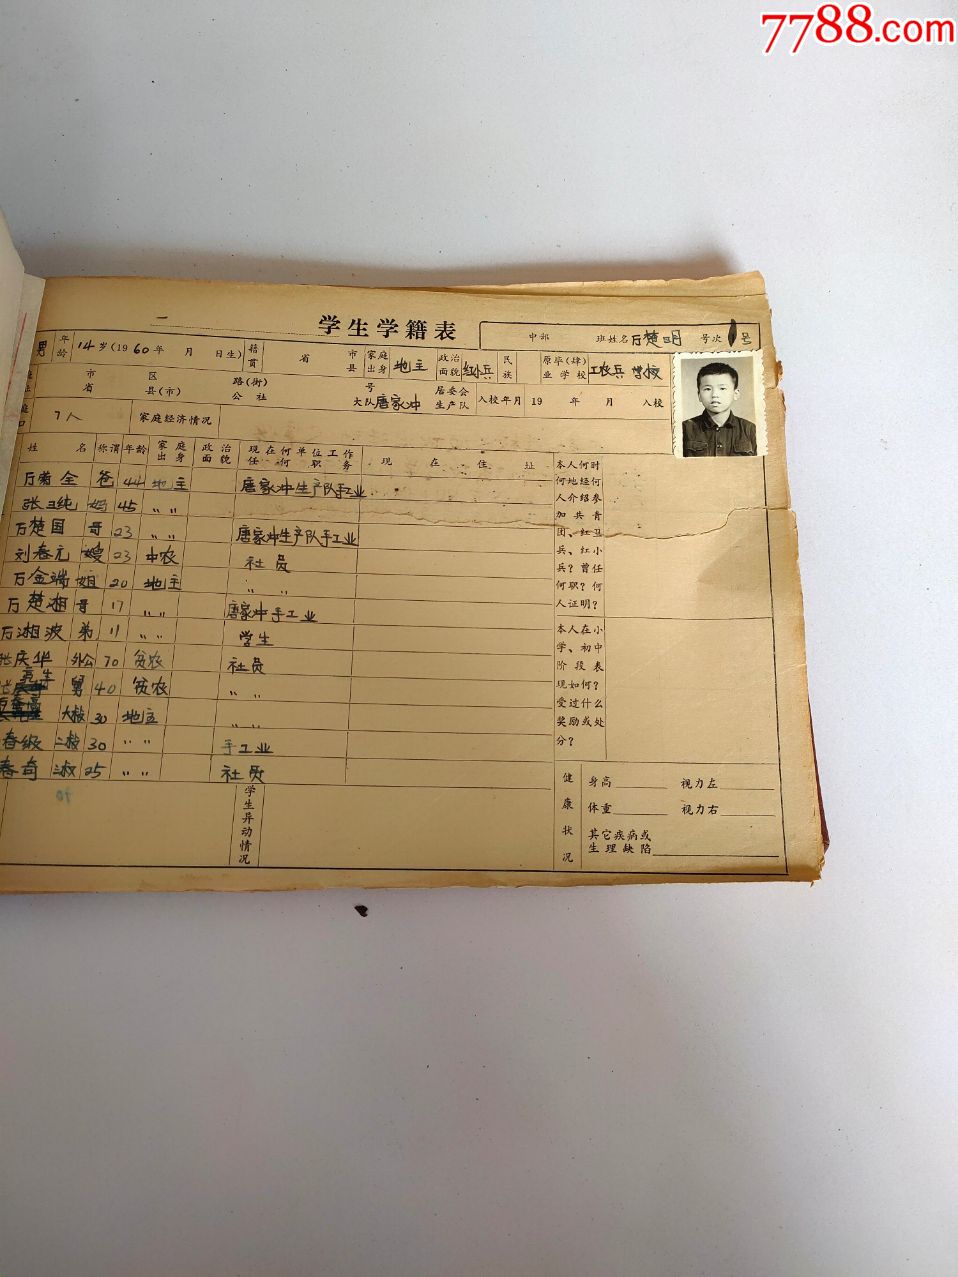 7788.com
学生学籍表
中部 班 姓名 万楚明 号次 号
男 年龄 14岁(1960年 月 日生) 籍贯 省 市县 家庭出身 地主 政治面貌 红小兵 民族 原毕(肄)业学校 工农兵学校
市 区 路(街) 号 居委会
省 县(市) 公社 大队 唐家冲 生产队 入校年月 19 年 月 入校
口 7人 家庭经济情况
姓名 称谓 年龄 家庭出身 政治面貌 现在何单位工作任何职务 现在住址
全 爸 44 地主 唐家冲生产队手工业
张 纯 妈 45 〃〃
万楚国 哥 23 〃〃 唐家冲生产队手工业
刘春元 嫂 23 中农 社员
万金端 姐 20 地主 〃 〃
万楚湘 哥 17 〃〃 唐家冲手工业
万湘波 弟 11 〃〃 学生
庆华 外公 70 贫农 社员
舅 40 贫农 〃〃
大叔 30 地主 〃〃
春级 二叔 30 〃〃 手工业
春奇 叔 25 〃〃 社员
学生异动情况
本人何时
何地经何
人介绍参
加共青
团、红卫
兵、红小
兵?曾任
何职?何
人证明?
本人在小
学、初中
阶段表
现如何?
受过什么
奖励或处
分?
健康状况
身高 视力左
体重 视力右
其它疾病或
生理缺陷